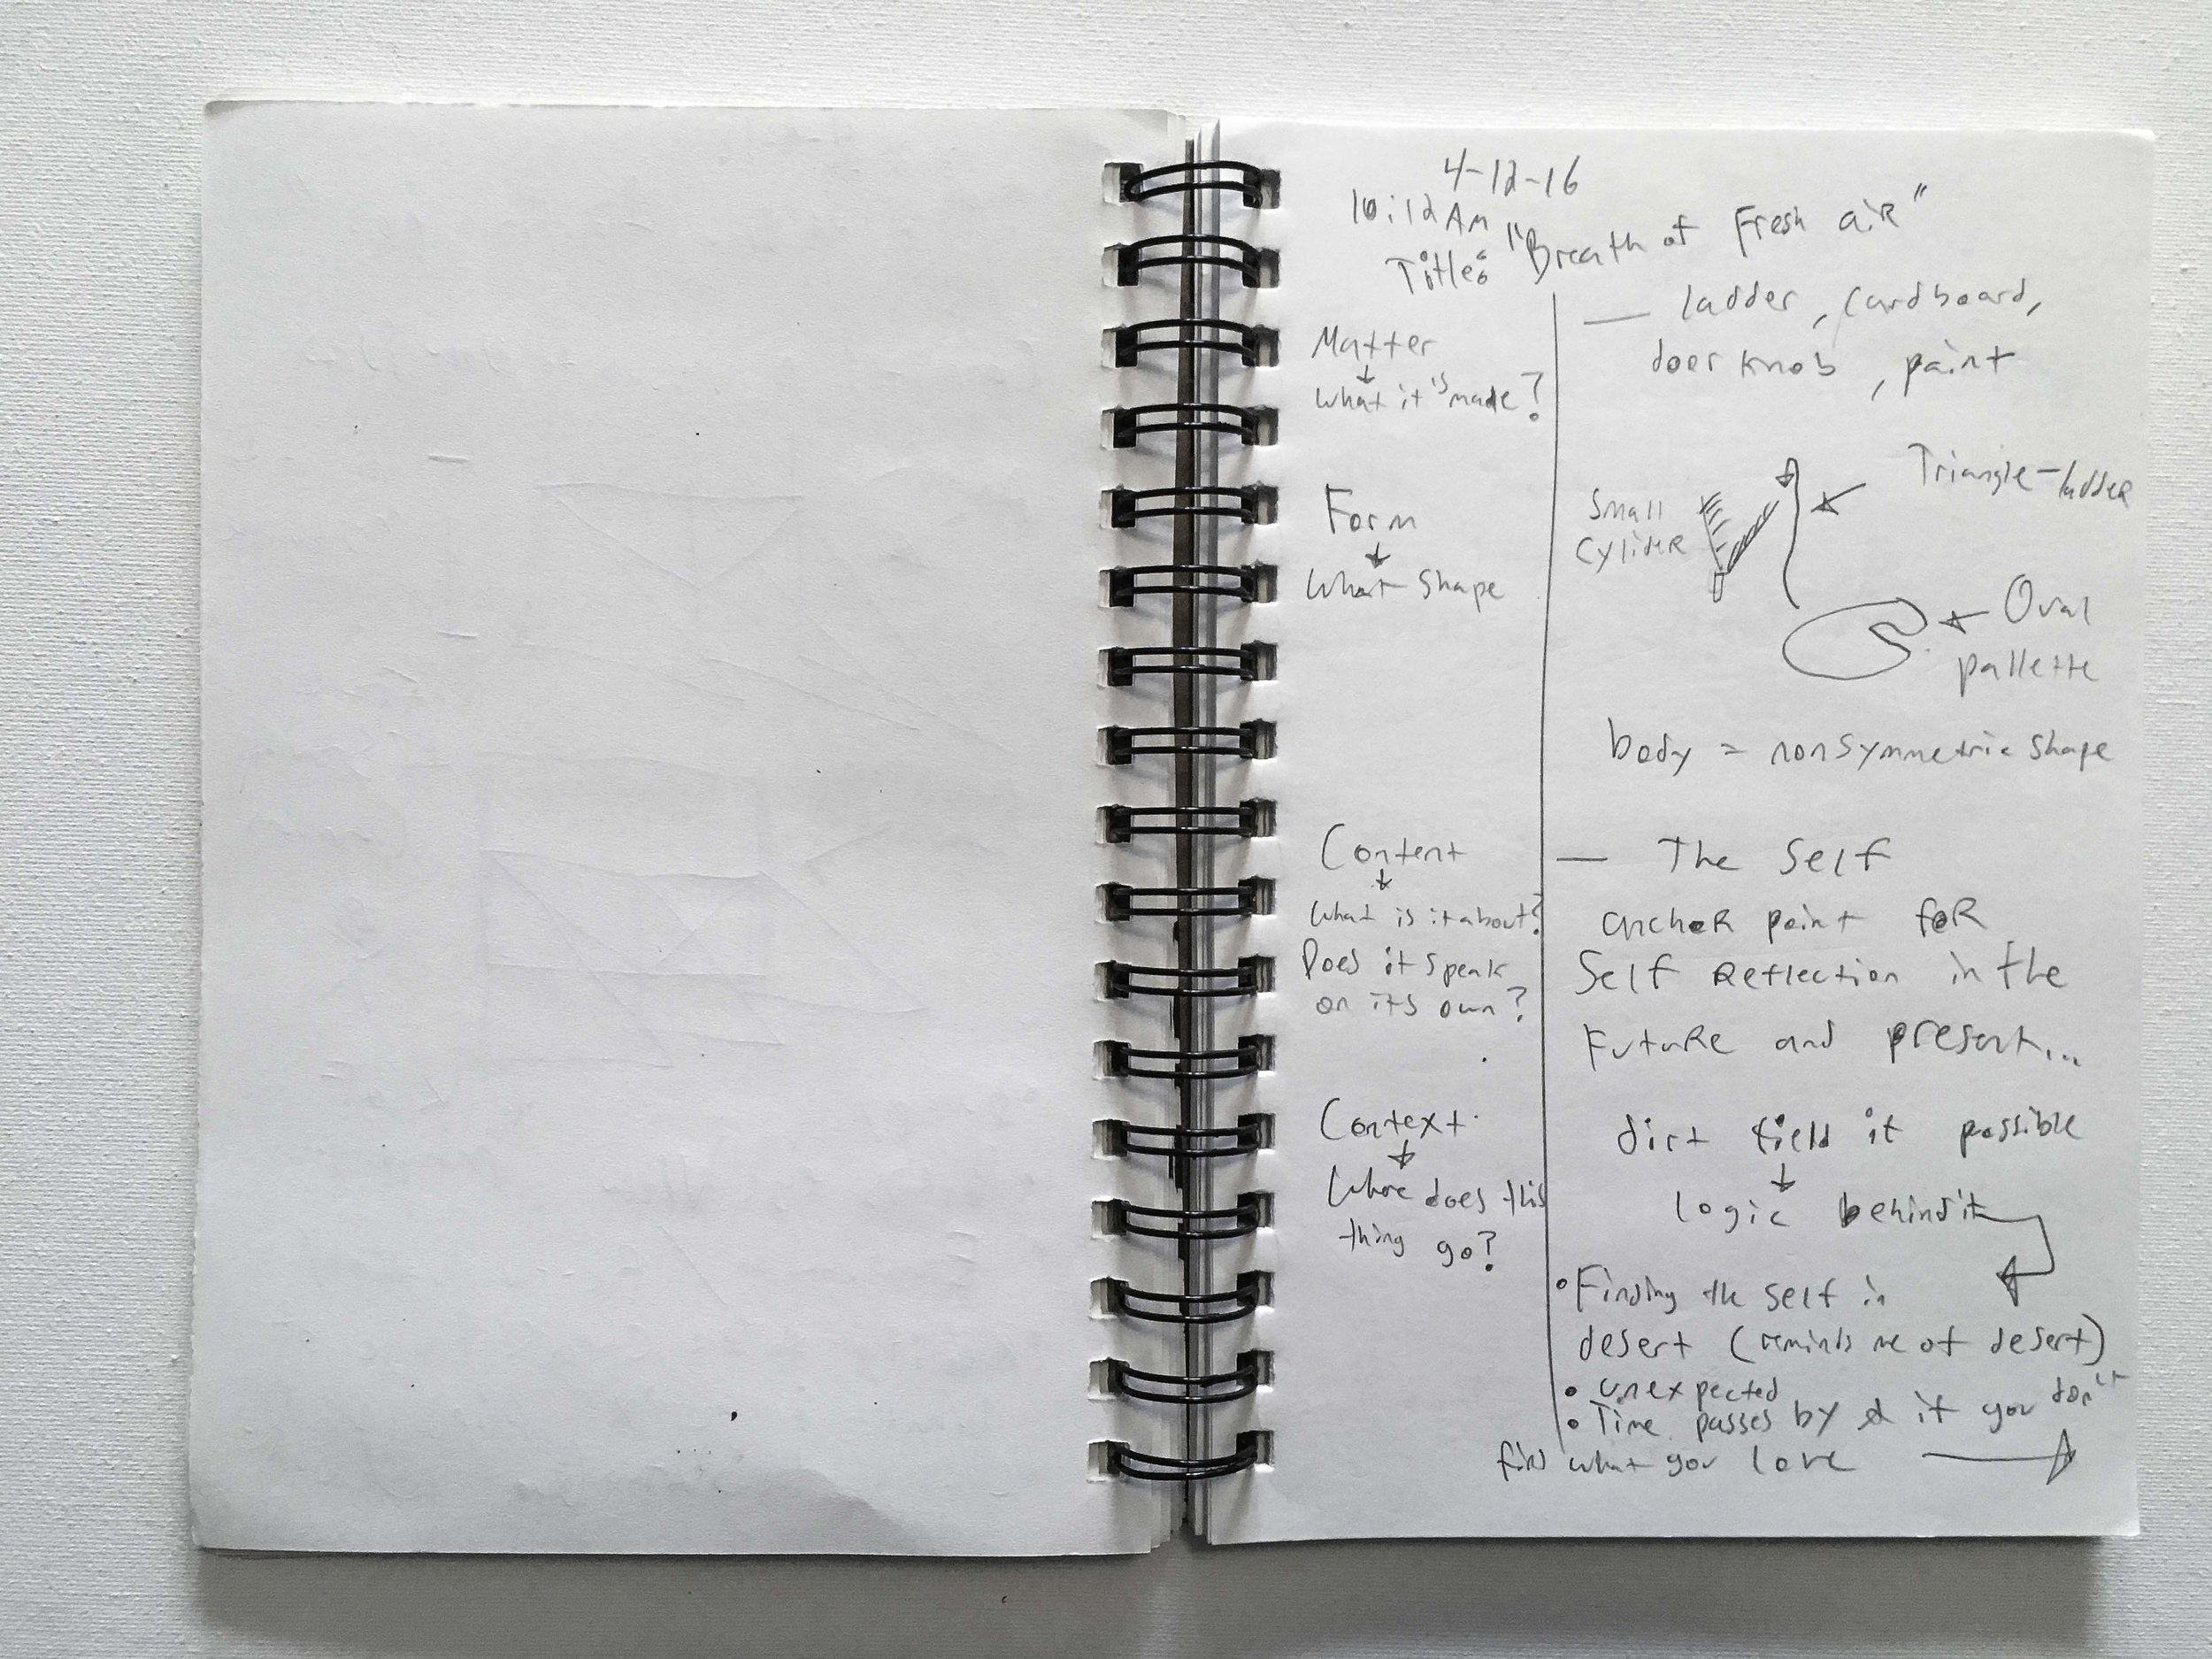 4-12-16
10:12 AM
Title: "Breath of Fresh aiR"
Matter
What it is made?
— ladder, cardboard,
door knob, paint
Form
What shape
Small
CylideR
Triangle-laddeR
Oval
pallette
body = nonsymmetric shape
Content
What is it about?
Does it speak
on its own?
— The Self
ancheR point foR
Self Reflection in the
FutuRe and present...
Context
Where does this
thing go?
dirt field if possible
logic behind it
• Finding the self in
desert (reminds me of desert)
• unexpected
• Time passes by & if you don't
find what you love